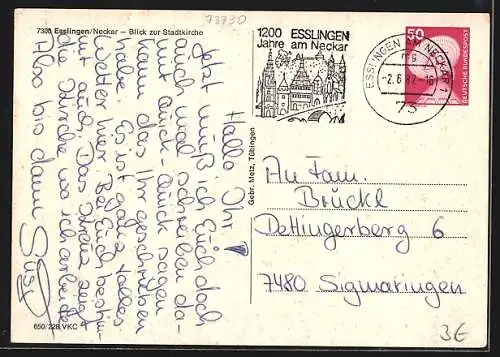 73730
7300 Esslingen/Neckar – Blick zur Stadtkirche
Hallo Ihr!
Jetzt muß ich Euch doch
auch mal schreiben da-
mit Quick-Quick sagen
kann das Ihr geschrieben
habt. Es ist ganz tolles
Wetter hier. Bei Euch bestim-
mt auch. Das Kreuz zeigt
die Kirche wo ich arbeite.
Also bis dann
Susi
650/228 VKC
Gebr. Metz, Tübingen
1200 ESSLINGEN
Jahre am Neckar
ESSLINGEN AM NECKAR 1
mg
-2.6.82-16
73
50
DEUTSCHE BUNDESPOST
An Fam.
Brückl
Dettingerberg 6
7480 Sigmaringen
3€